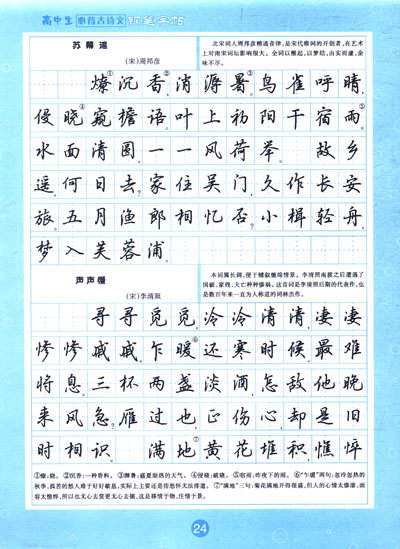 高中生 必背古诗文 钢笔字帖
苏幕遮
(宋)周邦彦
北宋词人周邦彦精通音律,是宋代雅词的开创者,在艺术
上对南宋词坛影响很大。全词以醒起,以梦结,由实而虚,余
味不尽。
燎沉香,②消溽暑。③鸟雀呼晴,
侵晓④窥檐语。叶上初阳干宿雨。⑤
水面清圆,一一风荷举。 故乡
遥,何日去?家住吴门,久作长安
旅。五月渔郎相忆否?小楫轻舟,
梦入芙蓉浦。
声声慢
(宋)李清照
本词属长调,便于铺叙缠绵情景。李清照南渡之后遭遇了
国破、家残、夫亡种种惨祸。这首词是李清照后期的代表作,也
是数百年来一直为人称道的词林杰作。
寻寻觅觅,冷冷清清,凄凄
惨惨戚戚。乍暖⑥还寒时候,最难
将息。三杯两盏淡酒,怎敌他晚
来风急?雁过也,正伤心,却是旧
时相识。 满地⑦黄花堆积,憔悴
①燎:烧。②沉香:一种香料。③溽暑:盛夏湿热的天气。④侵晓:破晓。⑤宿雨:昨夜下的雨。⑥“乍暖”两句:忽冷忽热的
秋季,孤苦的愁人难于好好歇息,实际上主要还是指愁怀无法排遣。⑦“满地”三句:菊花满地开得很盛,但人的心情太惨凄,面
容太憔悴,所以也无心去赏更无心去摘,这是移情于物,注情于景。
24